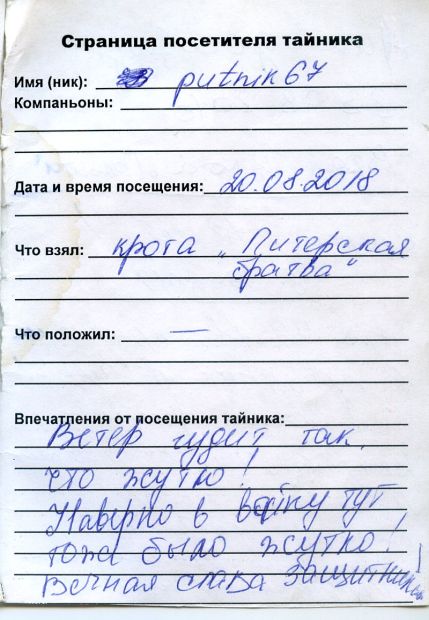 Страница посетителя тайника
Имя (ник): putnik67
Компаньоны:
Дата и время посещения: 20.08.2018
Что взял: крота „Питерская
братва"
Что положил: —
Впечатления от посещения тайника:
Ветер гудит так,
что жутко!
Наверно в войну тут
тоже было жутко!
Вечная слава защитникам!